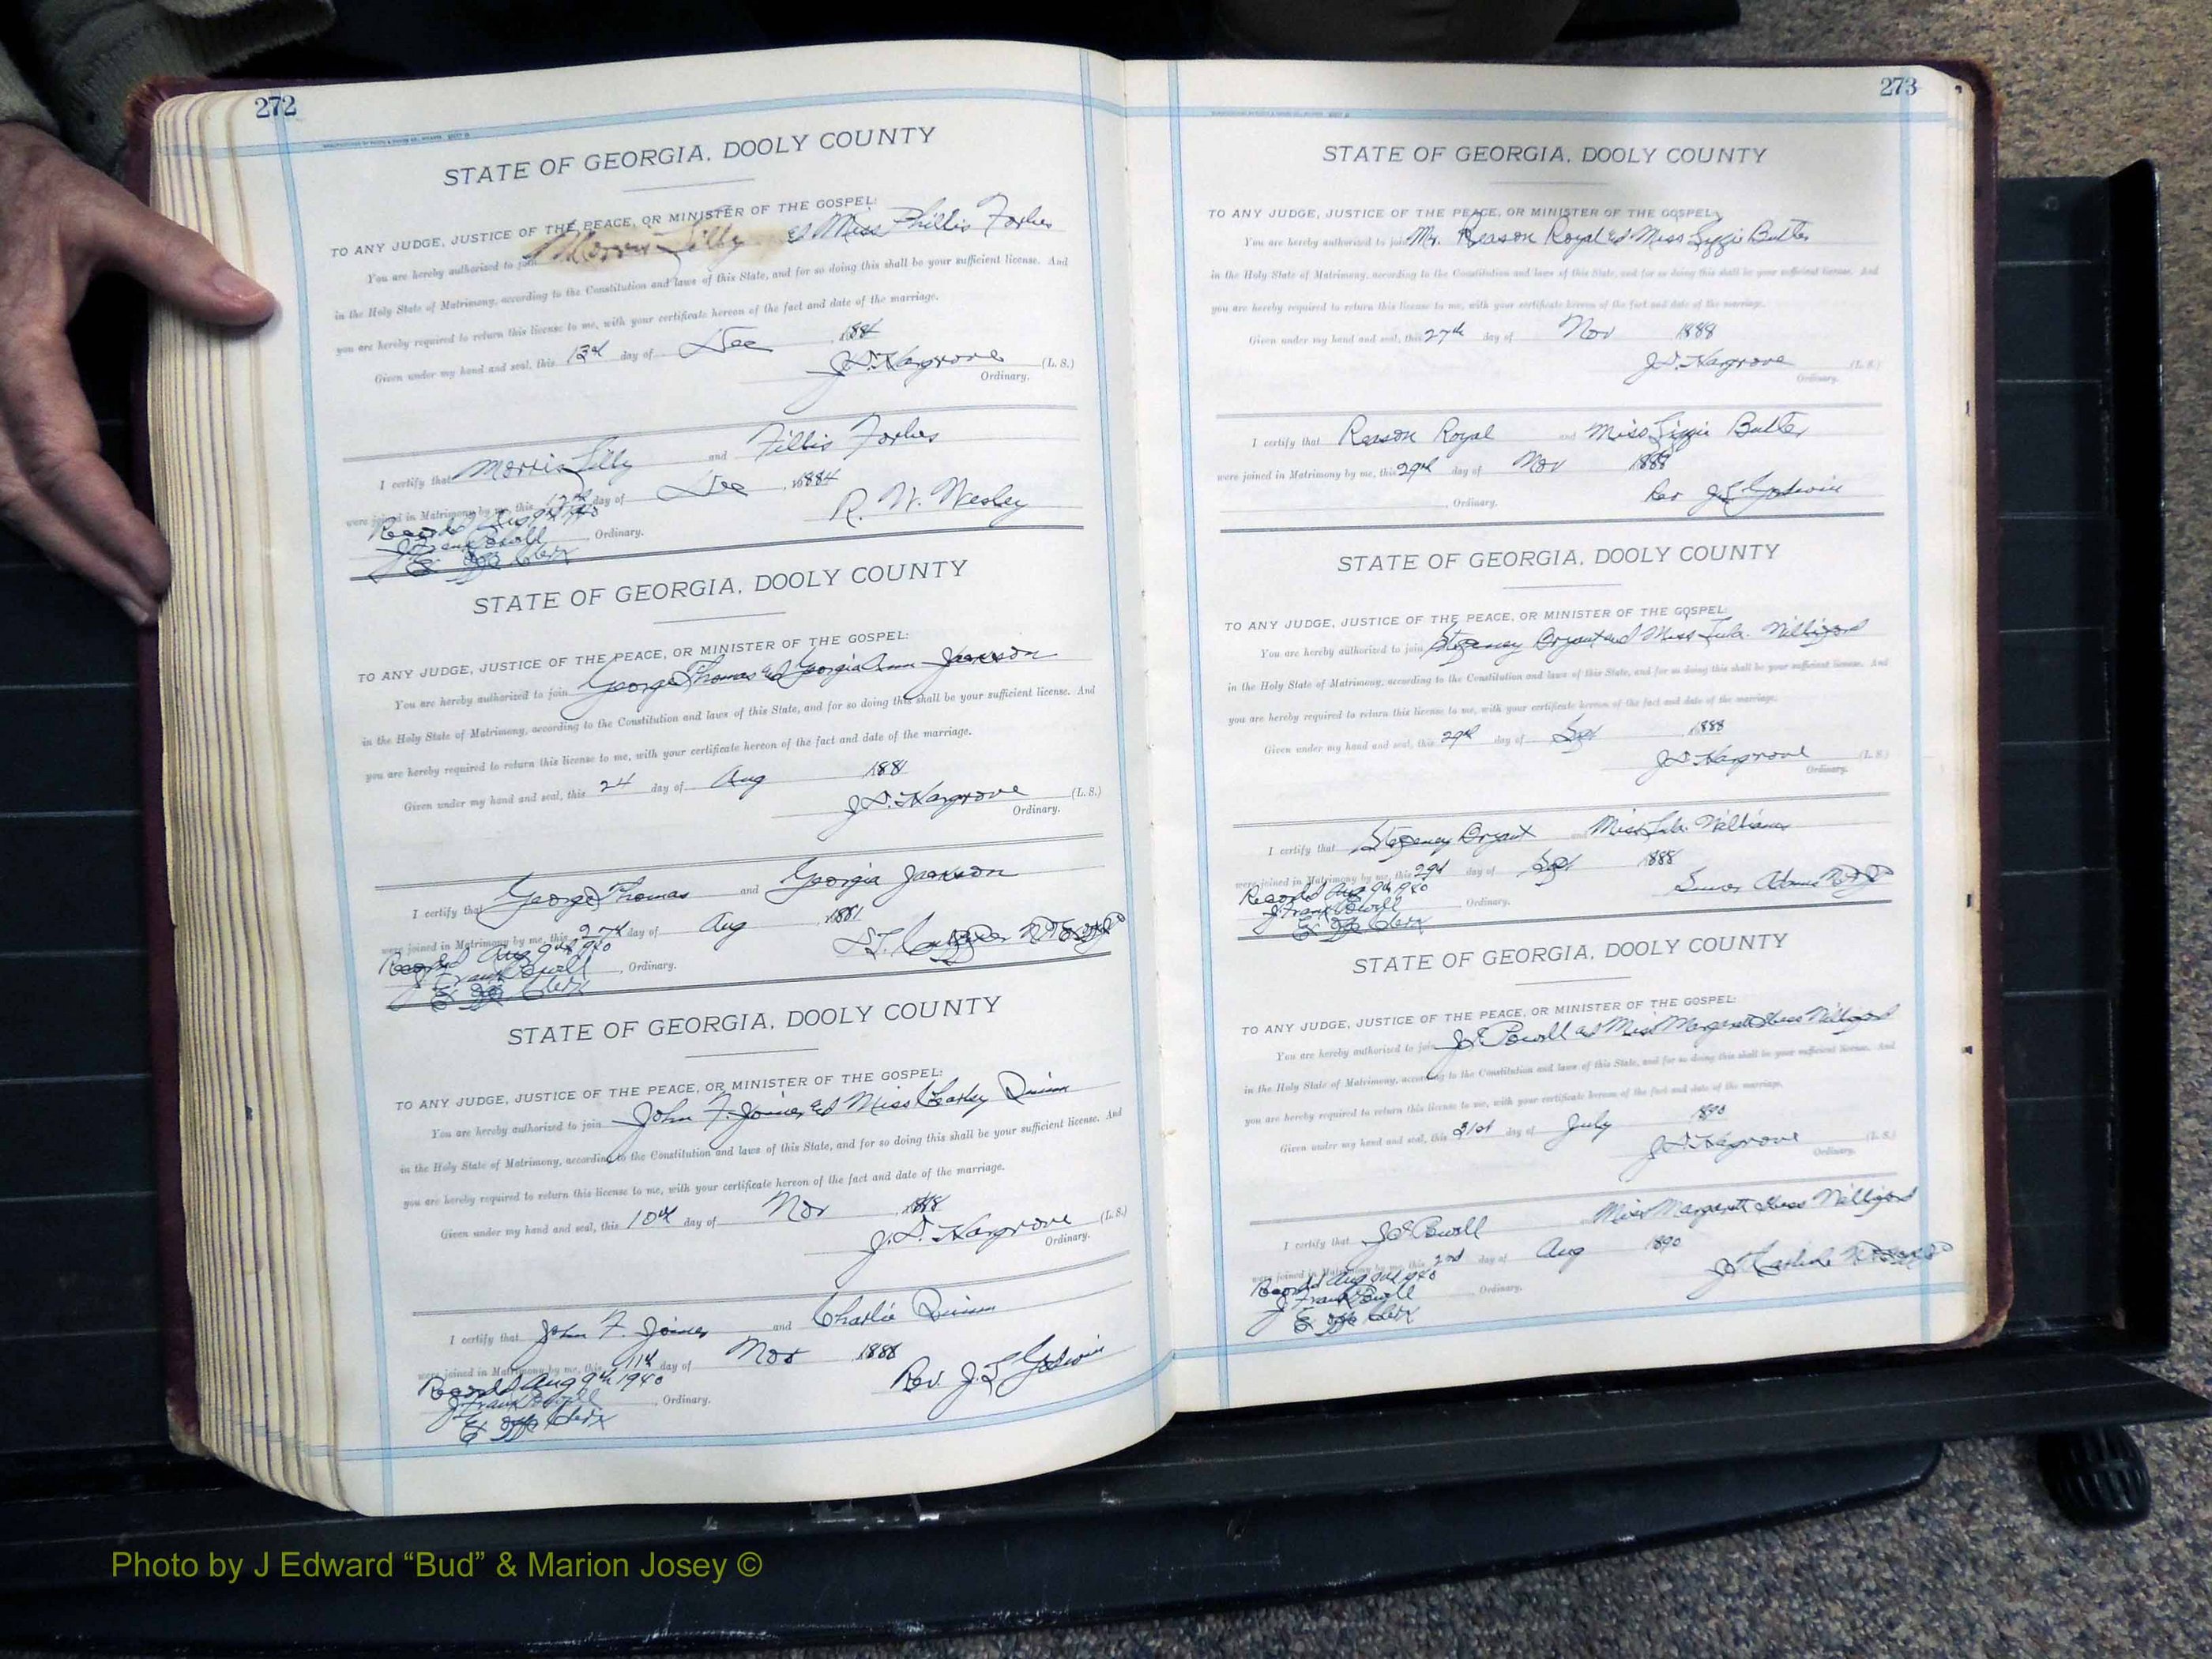 272
STATE OF GEORGIA, DOOLY COUNTY
TO ANY JUDGE, JUSTICE OF THE PEACE, OR MINISTER OF THE GOSPEL:
You are hereby authorized to join Morris Lilly & Miss Phillis Forbes
in the Holy State of Matrimony, according to the Constitution and laws of this State, and for so doing this shall be your sufficient license. And
you are hereby required to return this license to me, with your certificate hereon of the fact and date of the marriage.
Given under my hand and seal, this day of Dec , 1884
J.D. Hargrove (L. S.)
Ordinary.
I certify that Morris Lilly and Fillis Forbes
were joined in Matrimony by me, this day of Dec , 1884
R. W. Wesley
Recorded Aug 9th 1940
, Ordinary.
J. Frank Powell
Ex Off Clerk
STATE OF GEORGIA, DOOLY COUNTY
TO ANY JUDGE, JUSTICE OF THE PEACE, OR MINISTER OF THE GOSPEL:
You are hereby authorized to join George Thomas & Georgia Ann Jackson
in the Holy State of Matrimony, according to the Constitution and laws of this State, and for so doing this shall be your sufficient license. And
you are hereby required to return this license to me, with your certificate hereon of the fact and date of the marriage.
Given under my hand and seal, this 24 day of Aug 1881
J.D. Hargrove (L. S.)
Ordinary.
I certify that George Thomas and Georgia Jackson
were joined in Matrimony by me, this 27th day of Aug , 1881
Recorded Aug 9th 1940
J. Frank Powell , Ordinary.
Ex Off Clerk
STATE OF GEORGIA, DOOLY COUNTY
TO ANY JUDGE, JUSTICE OF THE PEACE, OR MINISTER OF THE GOSPEL:
You are hereby authorized to join John F. Joiner & Miss Quinn
in the Holy State of Matrimony, according to the Constitution and laws of this State, and for so doing this shall be your sufficient license. And
you are hereby required to return this license to me, with your certificate hereon of the fact and date of the marriage.
Given under my hand and seal, this 10th day of Nov , 1888
J.D. Hargrove (L. S.)
Ordinary.
I certify that John F. Joiner and Charlie Quinn
were joined in Matrimony by me, this 11th day of Nov , 1888
Recorded Aug 9th 1940
Rev. J. L. Godwin
J. Frank Powell , Ordinary.
Ex Off Clerk
273
STATE OF GEORGIA, DOOLY COUNTY
TO ANY JUDGE, JUSTICE OF THE PEACE, OR MINISTER OF THE GOSPEL:
You are hereby authorized to join Mr. Reason Royal & Miss Lizzie Butler
in the Holy State of Matrimony, according to the Constitution and laws of this State, and for so doing this shall be your sufficient license. And
you are hereby required to return this license to me, with your certificate hereon of the fact and date of the marriage.
Given under my hand and seal, this 27th day of Nov 1888
J.D. Hargrove (L. S.)
Ordinary.
I certify that Reason Royal and Miss Lizzie Butler
were joined in Matrimony by me, this 29th day of Nov 1888
Rev J. L. Godwin
, Ordinary.
STATE OF GEORGIA, DOOLY COUNTY
TO ANY JUDGE, JUSTICE OF THE PEACE, OR MINISTER OF THE GOSPEL:
You are hereby authorized to join Bryant and Miss Lula
in the Holy State of Matrimony, according to the Constitution and laws of this State, and for so doing this shall be your sufficient license. And
you are hereby required to return this license to me, with your certificate hereon of the fact and date of the marriage.
Given under my hand and seal, this day of Sept , 1888
J.D. Hargrove (L. S.)
Ordinary.
I certify that Bryant and Miss
were joined in Matrimony by me, this day of Sept 1888
Recorded Aug 9th 1940
J. Frank Powell , Ordinary.
Ex Off Clerk
STATE OF GEORGIA, DOOLY COUNTY
TO ANY JUDGE, JUSTICE OF THE PEACE, OR MINISTER OF THE GOSPEL:
You are hereby authorized to join Powell and Miss Margarett
in the Holy State of Matrimony, according to the Constitution and laws of this State, and for so doing this shall be your sufficient license. And
you are hereby required to return this license to me, with your certificate hereon of the fact and date of the marriage.
Given under my hand and seal, this 31st day of July 1890
J.D. Hargrove (L. S.)
Ordinary.
I certify that Powell and Miss Margarett
were joined in Matrimony by me, this 2nd day of Aug 1890
Recorded Aug 9th 1940
J. Frank Powell , Ordinary.
Ex Off Clerk
Photo by J Edward “Bud” & Marion Josey ©